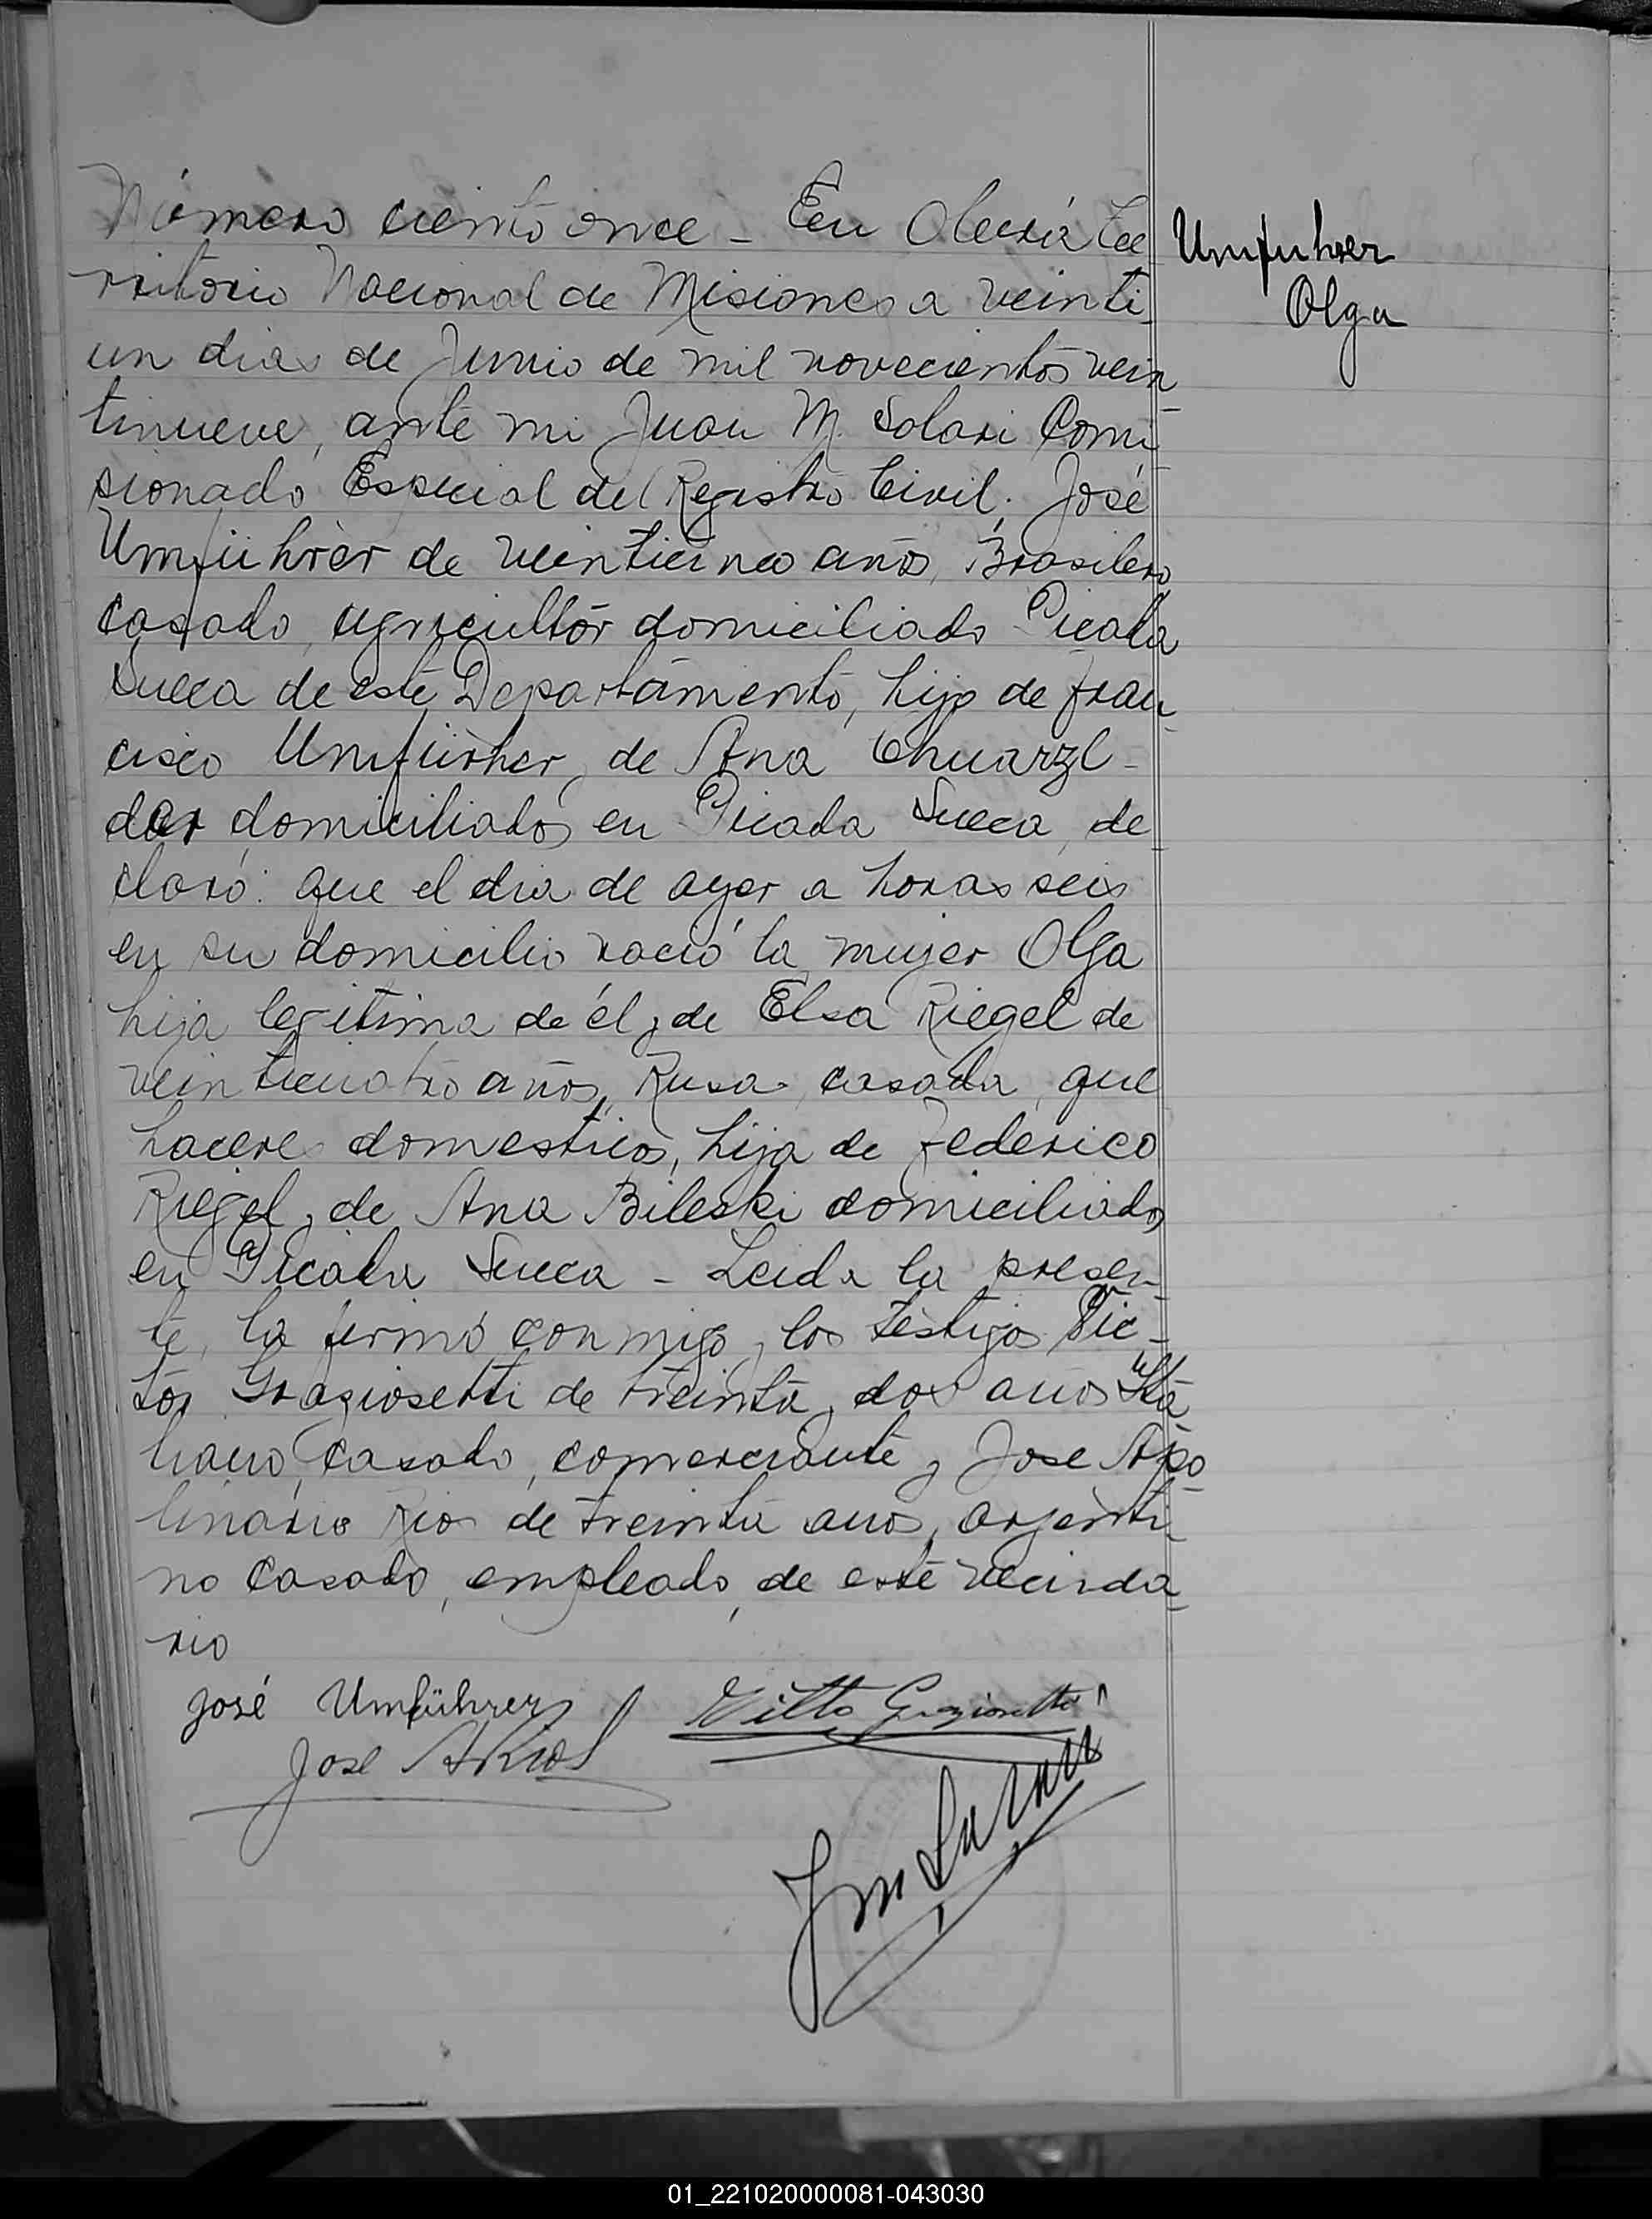 Número ciento once - En Oberá Te
Umfuhrer
rritorio Nacional de Misiones a veinti
Olga
un dias de Junio de mil novecientos vein
tinueve, ante mi Juan M. Solari Comi
sionado Especial del Registro Civil. José
Umführer de veinticinco años, Brasilero
casado, agricultor domiciliado Picada
Sueca de este Departamento, hijo de Fran
cisco Umfürher y de Ana Chuarzl-
der domiciliados en Picada Sueca, de
claró: que el dia de ayer a horas seis
en su domicilio nació la mujer Olga
hija legitima de él y de Elsa Riegel de
veinticuatro años, Rusa, casada, que
haceres domesticos, hija de Federico
Riegel y de Ana Bileski domiciliados
en Picada Sueca - Leida la presen-
te, la firmó conmigo y los testigos Vic-
tor Graziosetti de treinta y dos años Ita
liano, casado, comerciante y Jose Apo
linario Rios de treinta años, argenti
no casado, empleado, de este vecinda
rio
José Umführer
Vitto Graziosetti
Jose A Rios
01_221020000081-043030